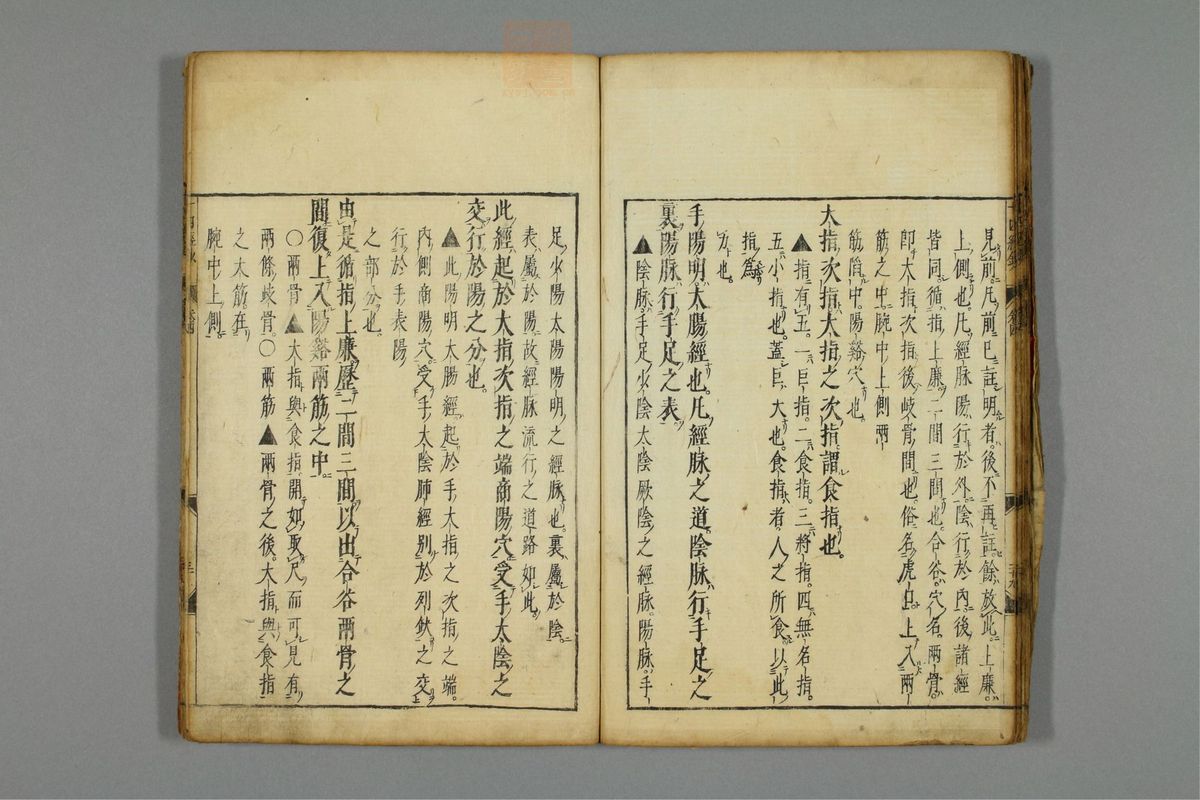 見前。凡前已註明者後不再註。餘放此。上廉。
上側也。凡經脉陽行於外陰行於內後諸經
皆同。循指上廉。二間三間也。合谷。穴名。兩骨。
即大指次指後岐骨間也。俗名虎口。上入兩
筋之中腕中上側兩
筋陷中。陽谿穴也。
大指次指大指之次指謂食指也。
▲指有五。一巨指。二食指。三將指。四無名指。
五小指也。蓋巨大也。食指者人之所食以此
指為
力也。
手陽明大腸經也。凡經脉之道陰脉行手足之
裏陽脉行手足之表
▲陰脉手足少陰太陰厥陰之經脉。陽脉手
足少陽太陽陽明之經脉也。裏屬於陰。
表屬於陽故經脉流行之道路如此。
此經起於大指次指之端商陽穴受手太陰之
交行於陽之分也。
▲此陽明大腸經起於手大指之次指之端。
內側商陽穴受手太陰肺經別於列缺之交
行於手表陽
之部分也。
由是循指上廉歷二間三間以出合谷兩骨之
間復上入陽谿兩筋之中
〇兩骨▲大指與食指開如取尺而可見有
兩條岐骨〇兩筋▲兩骨之後。大指與食指
之大筋在
腕中上側。